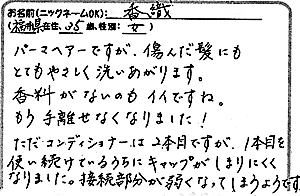 お名前(ニックネームOK): 香織
(福岡県在住、35歳、性別: 女)
パーマヘアーですが、傷んだ髪にも
とてもやさしく洗いあがります。
香料がないのもイイですね。
もう手離せなくなりました!
ただコンディショナーは2本目ですが、1本目を
使い続けているうちにキャップがしまりにくく
なりました。接続部分が弱くなってしまうようです